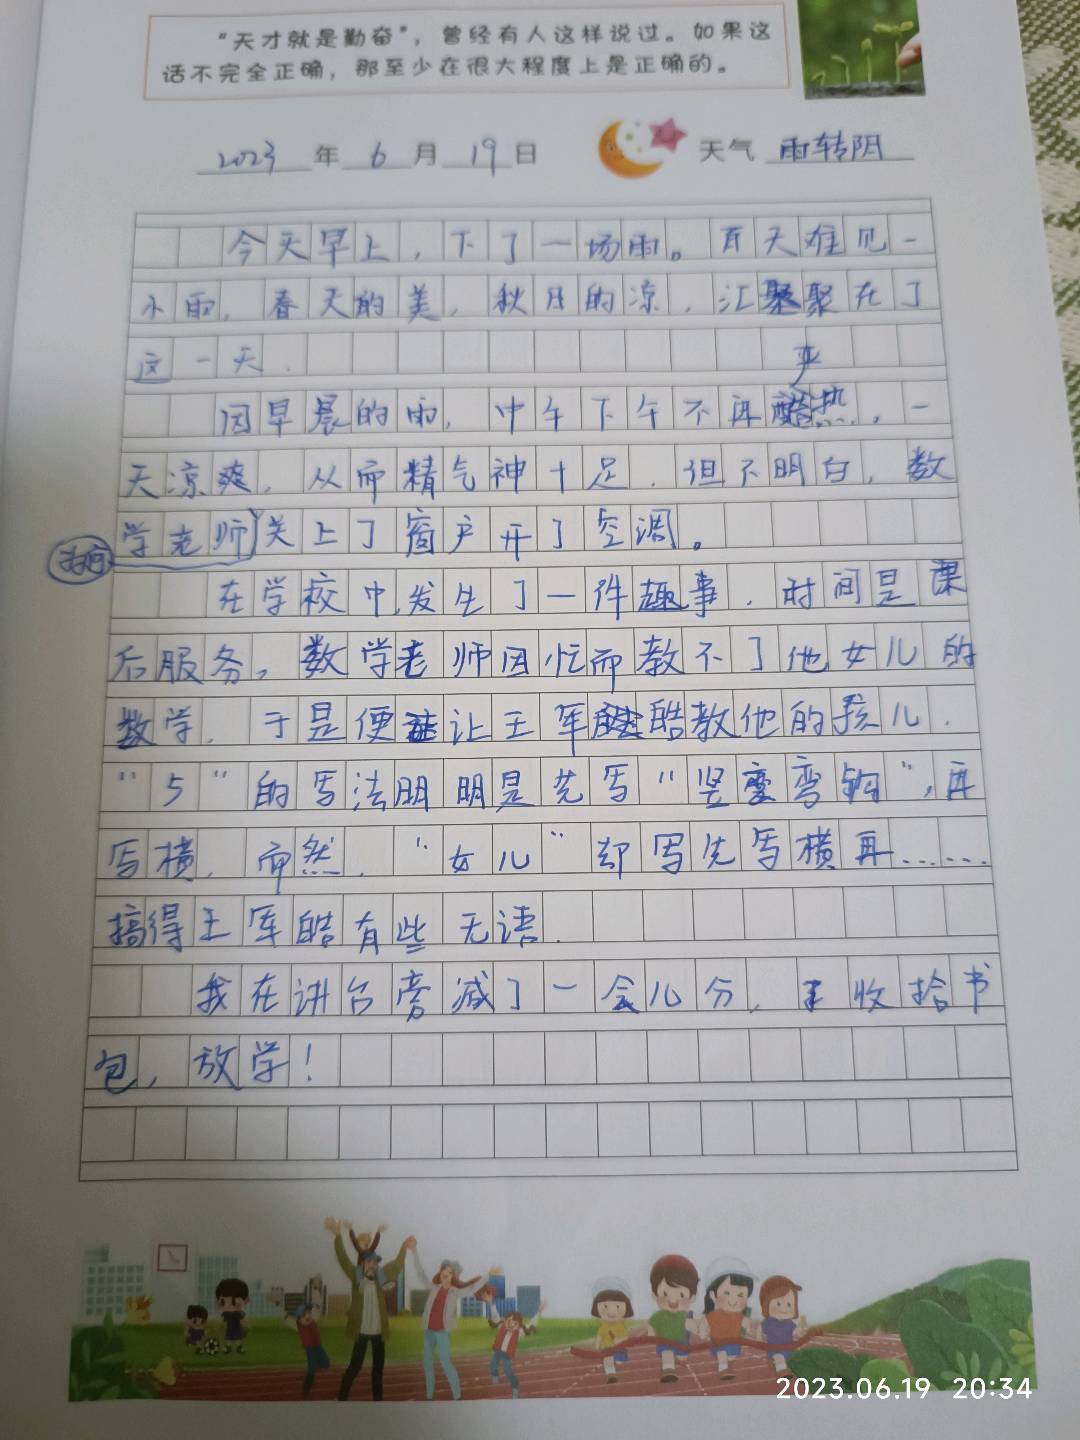 “天才就是勤奋”，曾经有人这样说过。如果这
话不完全正确，那至少在很大程度上是正确的。
2023 年 6 月 19 日 天气 雨转阴
今天早上，下了一场雨。夏天难见一
小雨，春天的美，秋日的凉，汇聚在了
这一天.
严
因早晨的雨，中午下午不再热，一
天凉爽，从而精气神十足.但不明白，数
学老师关上了窗户开了空调。
在学校中,发生了一件趣事.时间是课
后服务。数学老师因忙而教不了他女儿的
数学.于是便让王军皓教他的孩儿.
“5”的写法明明是先写“竖变弯钩”，再
写横.而然.“女儿”却写先写横再……
搞得王军皓有些无语.
我在讲台旁减了一会儿分，收拾书
包，放学！
2023.06.19 20:34